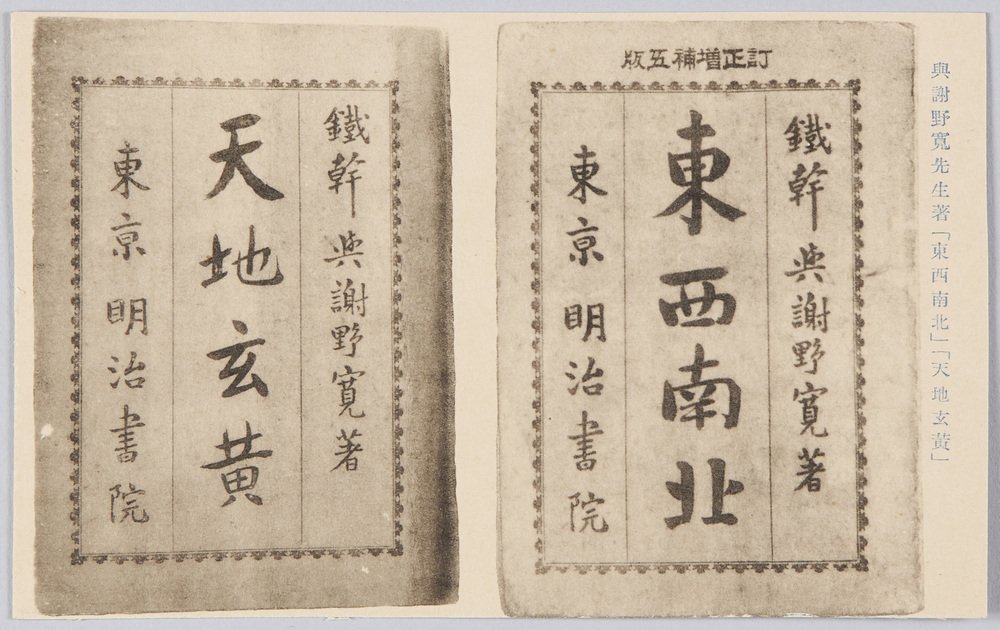 與謝野寬先生著「東西南北」「天地玄黃」
訂正增補五版
鐵幹 與謝野寬著
東西南北
東京 明治書院
鐵幹 與謝野寬著
天地玄黃
東京 明治書院